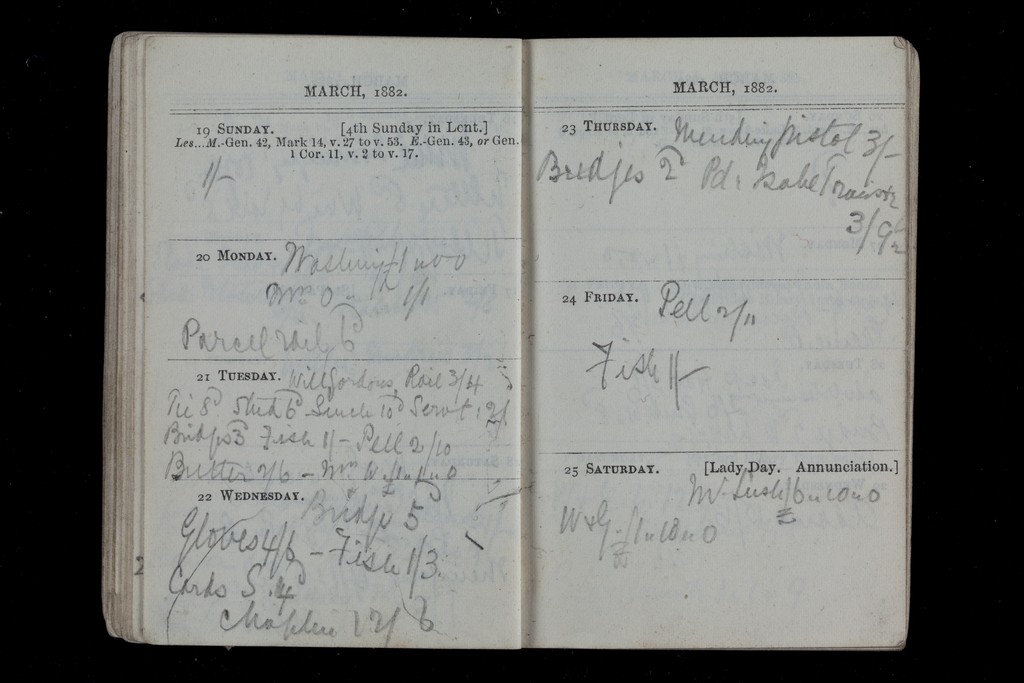 MARCH, 1882.
19 SUNDAY. [4th Sunday in Lent.]
Les...M.-Gen. 42, Mark 14, v. 27 to v. 53. E.-Gen. 43, or Gen.
1 Cor. 11, v. 2 to v. 17.
1/-
20 MONDAY. Washing £1 " 0 " 0
Mrs O - 1/1
Parcel rail 6d
21 TUESDAY. Rail 3/4
Tie 8d Stud 6d Lunch 10d Servt: 2/
Bridges 3d Fish 1/- Pell 2/10
Butter 2/6 - Mrs W. £1 " 1 " 0
22 WEDNESDAY. Bridge 5d
Gloves 4/6 - Fish 1/3
Cards S. 4d
2/6
MARCH, 1882.
23 THURSDAY. Mending pistol 3/-
Bridges 2d Pd: Isabel
3/9½
24 FRIDAY. Pell 2/11
Fish 1/-
25 SATURDAY. [Lady Day. Annunciation.]
Mr. Lush £6 " 10 " 0
W & G - £1 " 10 " 0